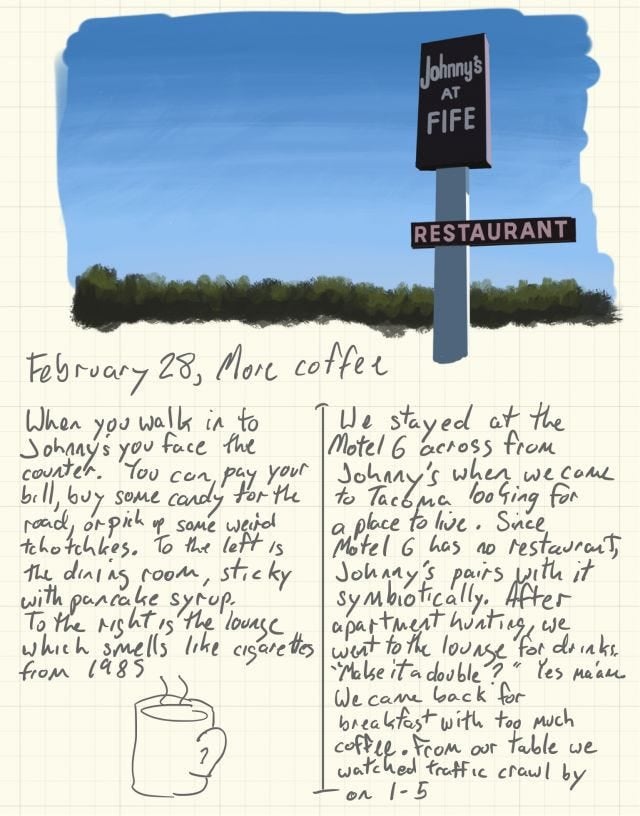 Johnny's
AT
FIFE
RESTAURANT
February 28, More coffee
When you walk in to
Johnny's you face the
counter. You can pay your
bill, buy some candy for the
road, or pick up some weird
tchotchkes. To the left is
the dining room, sticky
with pancake syrup.
To the right is the lounge
which smells like cigarettes
from 1985
?
We stayed at the
Motel 6 across from
Johnny's when we came
to Tacoma looking for
a place to live. Since
Motel 6 has no restaurant,
Johnny's pairs with it
symbiotically. After
apartment hunting, we
went to the lounge for drinks.
"Make it a double?" Yes ma'am.
We came back for
breakfast with too much
coffee. From our table we
watched traffic crawl by
on I-5